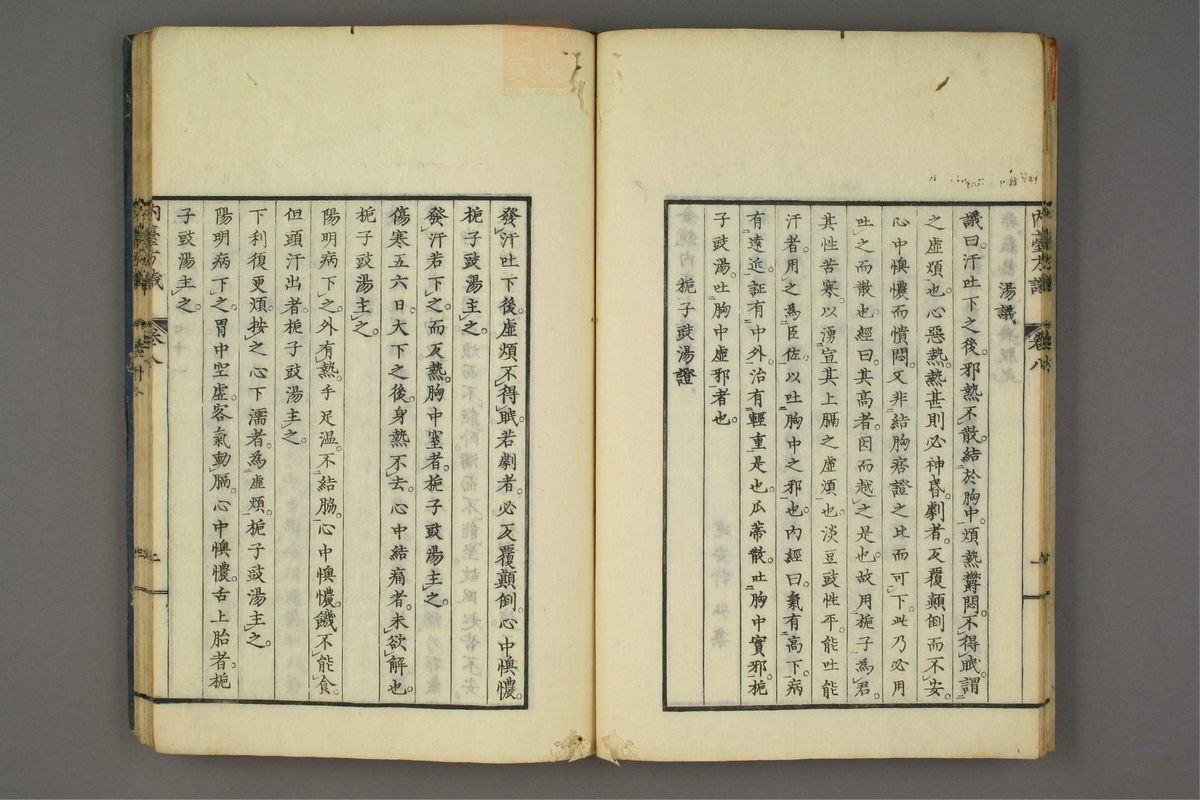 湯議
議曰。汗吐下之後。邪熱不散。結於胸中。煩熱欝悶。不得眠。謂
之虛煩也。心惡熱。熱甚則必神昏。劇者。反覆顛倒而不安。
心中懊憹而憒悶。又非結胸痞證之比而可下。此乃必用
吐之而散也。經曰。其高者。因而越之是也。故用梔子為君。
其性苦寒。以湧宣其上膈之虛煩也。淡豆豉性平。能吐能
汗者。用之為臣佐。以吐胸中之邪也。內經曰。氣有高下。病
有遠近。証有中外。治有輕重。是也。瓜蒂散。吐胸中實邪。梔
子豉湯。吐胸中虛邪者也。
梔子豉湯證
發汗吐下後。虛煩不得眠。若劇者。必反覆顛倒。心中懊憹。
梔子豉湯主之。
發汗若下之。而反熱。胸中窒者。梔子豉湯主之。
傷寒五六日。大下之後。身熱不去。心中結痛者。未欲解也。
梔子豉湯主之。
陽明病下之。外有熱。手足溫。不結胸。心中懊憹。饑不能食。
但頭汗出者。梔子豉湯主之。
下利後更煩。按之心下濡者。為虛煩。梔子豉湯主之。
陽明病下之。胃中空虛。客氣動膈。心中懊憹。舌上胎者。梔
子豉湯主之。
內臺方議
卷八